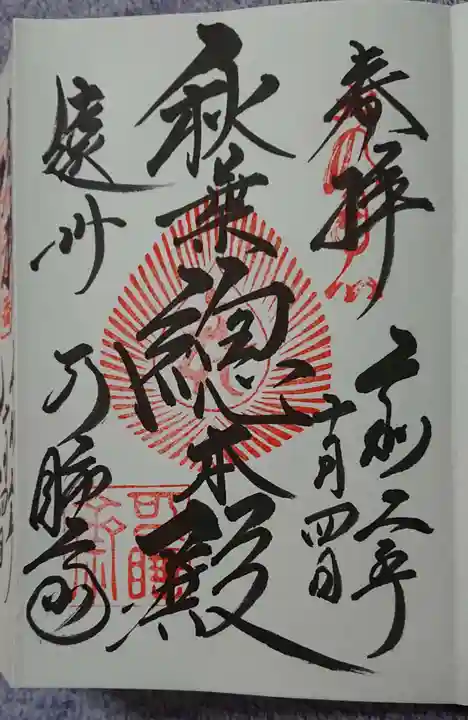 奉拝
令和二年
十月四日
秋葉總本殿
遠州 可睡斎